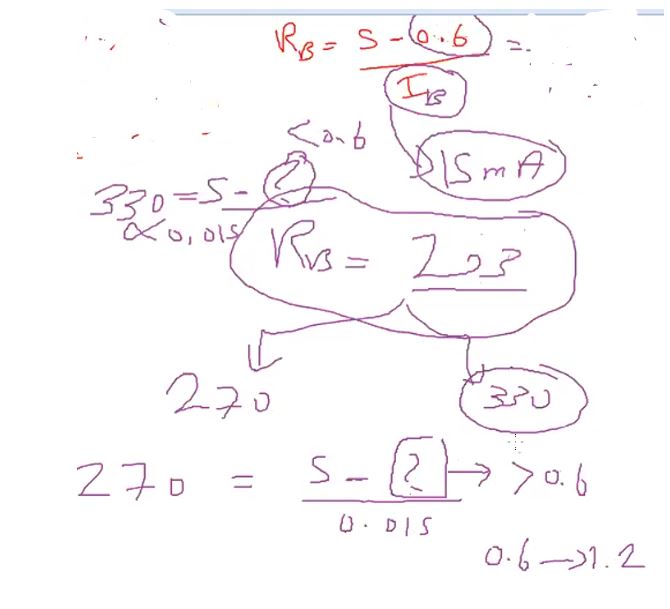 RB = 5 - 0.6 =
IB
15 mA
< 0.6
330 = 5 - ?
0,015
RVB = 203
270
330
270 = 5 - ? → > 0.6
0.015
0.6 → 1.2